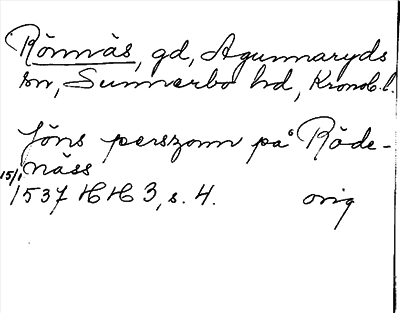 Rönnäs, gd, Agunnaryds
sn, Sunnerbo hd, Kronob. l.
Jöns perszonn på Röde-
näss
15/1 1537 HH 3, s. 4. orig